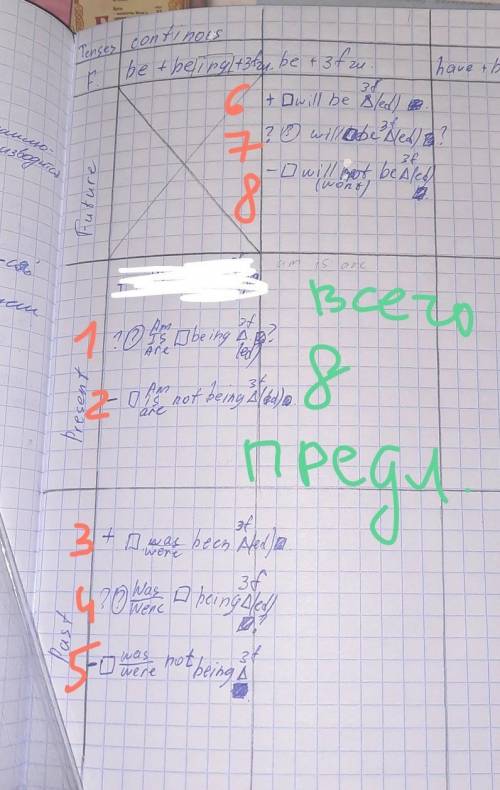 Tenses continois
F be + being + 3f
be + 3f
have + b
Fiuture
6 + □ will be 3f Δ(ed)
7 ? will be 3f Δ(ed) ?
8 - □ will not be 3f Δ(ed)
(wont)
am is are
всего
8
предл.
Present
1 ? Am Is Are □ being 3f Δ (ed) ?
2 - □ Am is are not being 3f Δ(ed)
Past
3 + □ was were been 3f Δ(ed)
4 ? Was Were □ being 3f Δ(ed) ?
5 - □ was were not being 3f Δ